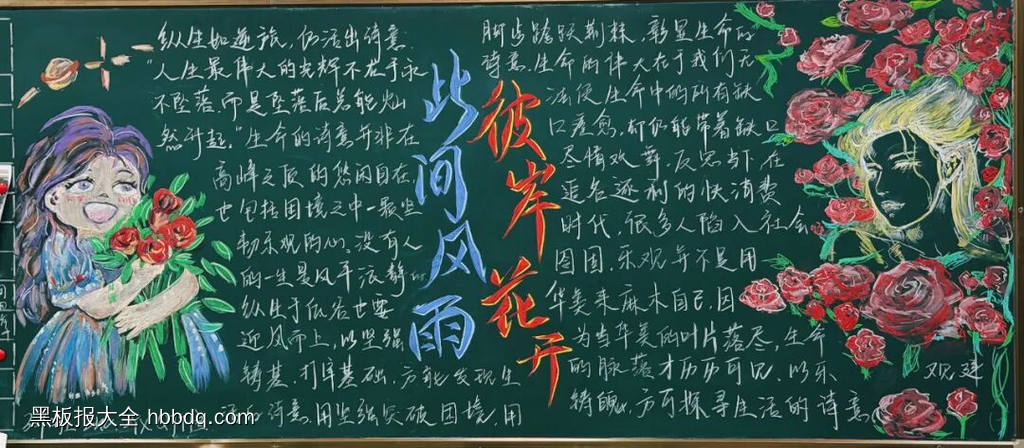 纵生如逆旅,仍活出诗意.
"人生最伟大的光辉不在于永
不坠落,而是坠落后总能灿
然升起."生命的诗意并非在
高峰之顶的悠闲自在
也包括困境之中一颗坚
韧乐观的心,没有人
的一生是风平浪静的
纵生于低谷也要
迎风而上,以坚强
铸基,打牢基础,方能发现生
活的诗意.用坚强突破困境,用
此间风雨
彼岸花开
脚步踏跃荆棘,彰显生命的
诗意.生命的伟大在于我们无
法使生命中的所有缺
口痊愈,却仍能带着缺口
尽情欢舞,反思当下,在
追名逐利的快消费
时代,很多人陷入社会
囹圄.乐观并不是用
华美来麻木自己,因
为当华美的叶片落尽,生命
的脉落才历历可见.以乐 观建
铸魄,方可探寻生活的诗意
黑板报大全 hbbdq.com